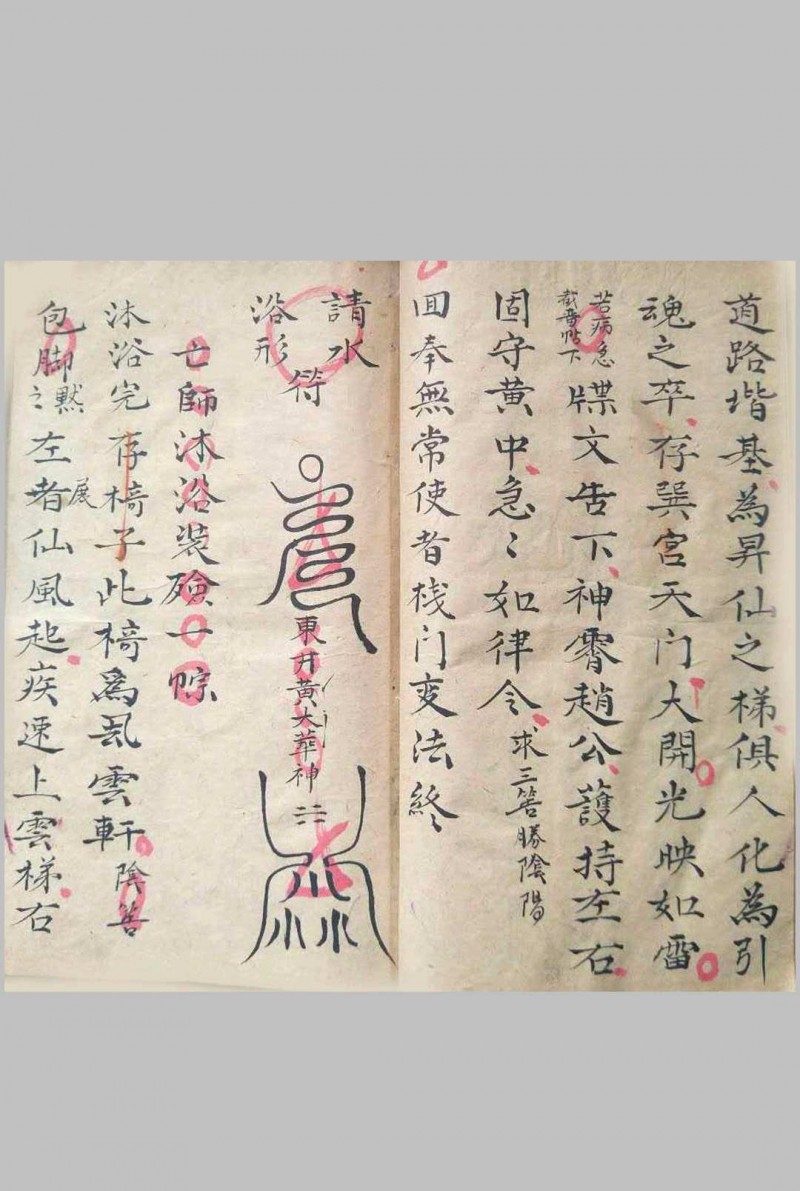 道路堦基為昇仙之梯俱人化為引
魂之卒存巽宮天门大開光映如雷
若病急
截番帖下
牒文告下神霄趙公護持左右
固守黄中急〻如律令求三筶勝陰陽
回奉無常使者栈门変法終
請水
浴形
符
東井黄大華神
亡師沐浴装殮一宗
沐浴完存椅子此椅為虱雲軒陰筶
包脚黙之左者仙風起疾速上雲梯右
展